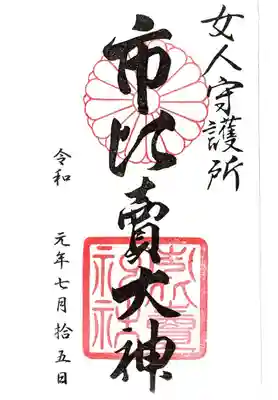 女人守護所
市比賣大神
令和
元年七月拾五日